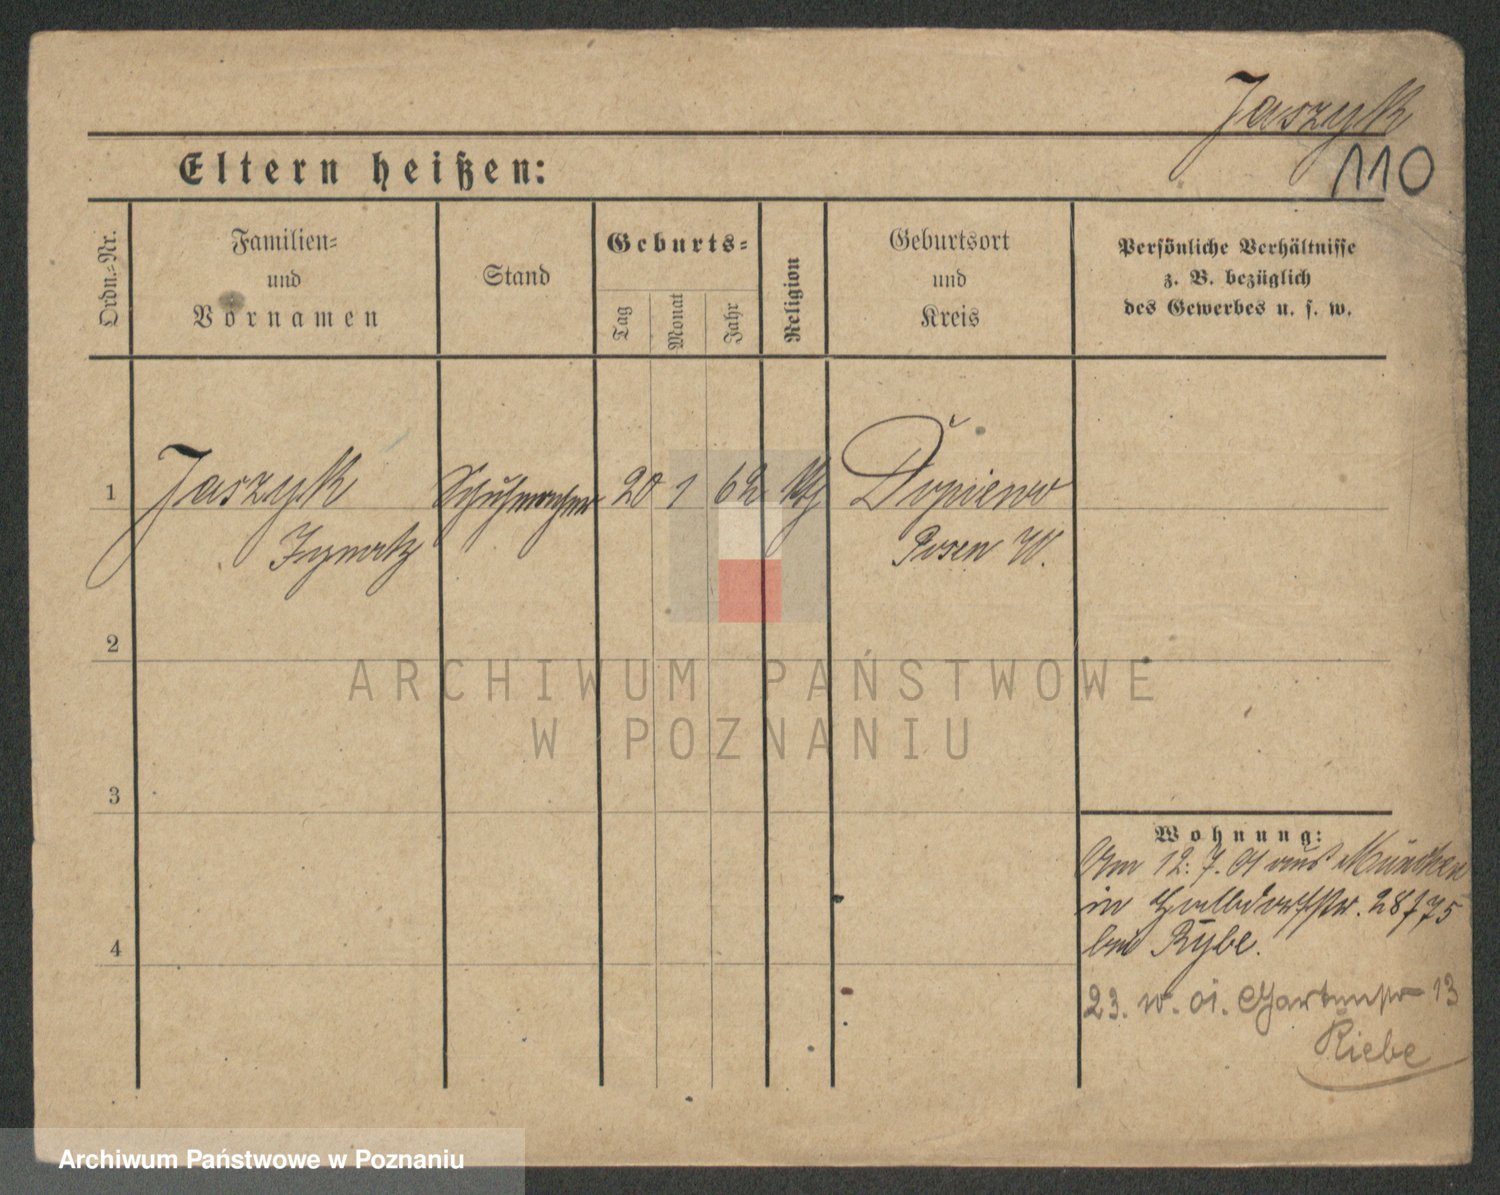 Jaszyk
110
Eltern heißen:
Ordn.-Nr.
Familien-
und
Vornamen
Stand
Geburts-
Tag
Monat
Jahr
Religion
Geburtsort
und
Kreis
Persönliche Verhältnisse
z. B. bezüglich
des Gewerbes u. s. w.
1
Jaszyk
Ignatz
Schuhmacher
20
1
62
Dopiewo
Posen W.
2
ARCHIWUM PAŃSTWOWE
W POZNANIU
3
Wohnung:
Am 12.7.01 aus München
in Halbdorfstr. 28/75
bei Rybe.
23. 10. 01. Gartenstr 13
Riebe
4
Archiwum Państwowe w Poznaniu